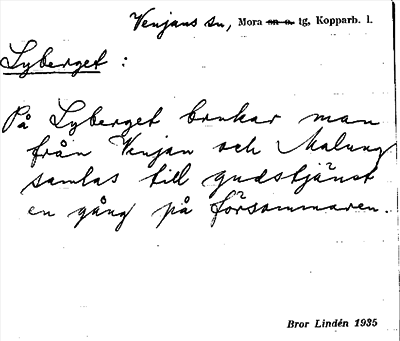 Venjans sn, Mora sn o. tg, Kopparb. l.
Lyberget :
På Lyberget brukar man
från Venjan och Malung
samlas till gudstjänst
en gång på försommaren.
Bror Lindén 1935